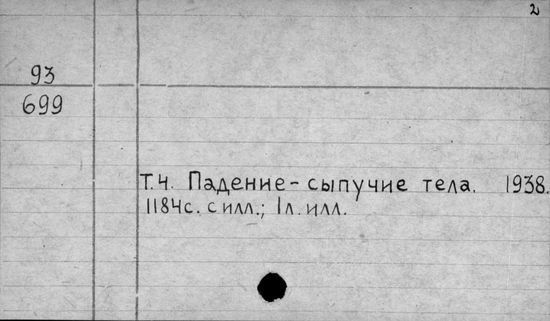 2
93
699
Т.4. Падение - сыпучие тела. 1938.
1184с. с илл.; 1л. илл.